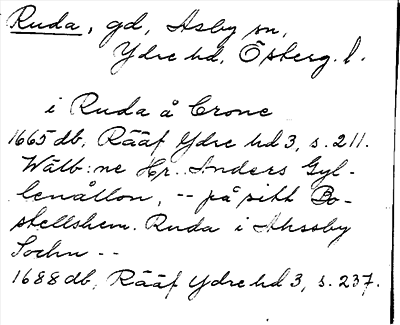 Ruda, gd, Asby sn,
Ydre hd, Österg. l.
i Ruda å Crone
1665 db, Rääf Ydre hd 3, s. 211.
Wälb:ne Hr. Anders Gyl-
lenållon, -- på sitt Bo-
stellshem. Ruda i Ahssby
Sochn --
1688 db, Rääf Ydre hd 3, s. 237.